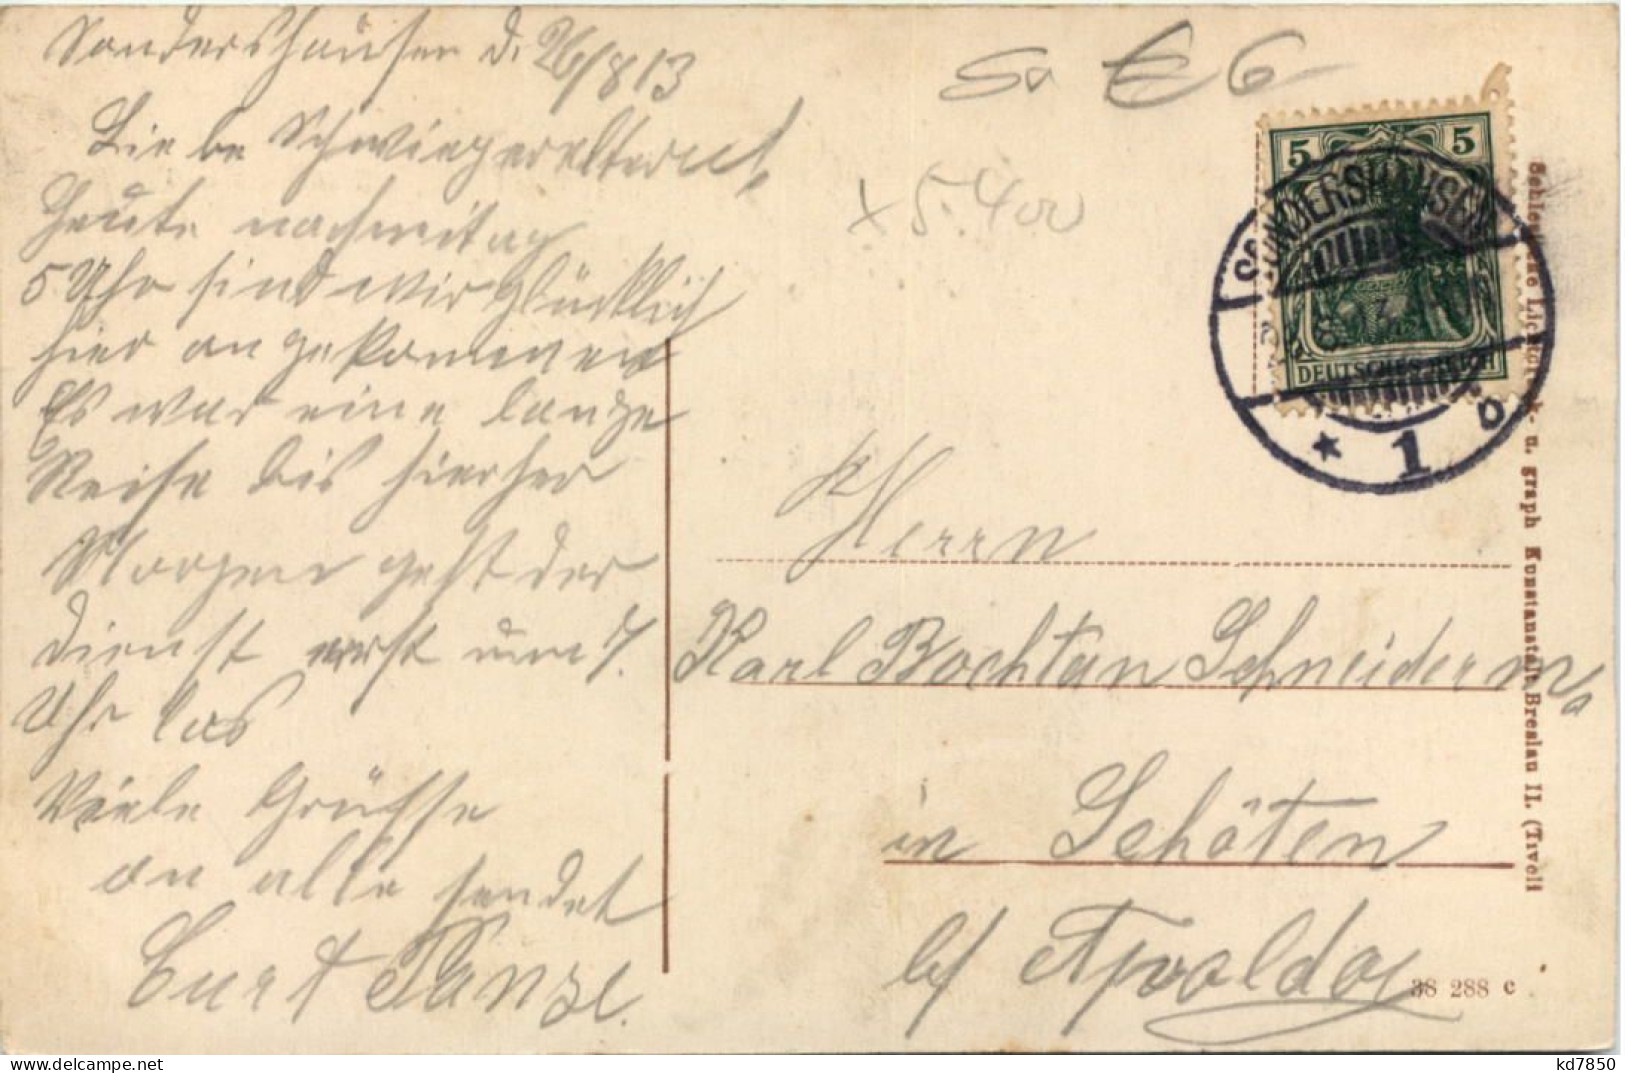 Sondershausen d. 26/8 13
Liebe Schwiegereltern!
Heute nachmitag
5 Uhr sind wir glücklich
hier angekommen
Es war eine lange
Reise bis hierher
Morgen geht der
Dienst erst um 7.
Uhr los
Viele Grüsse
an alle sendet
Curt
So € 6
x 5.400
5 5
DEUTSCHES REICH
SONDERSHAUSEN
* 1 b
Herrn
Karl Bochtan Schneiderm.
in Schöten
b/ Apolda
38 288 c
u. graph Kunstanstalt Breslau II. (Tivoli
kd7850